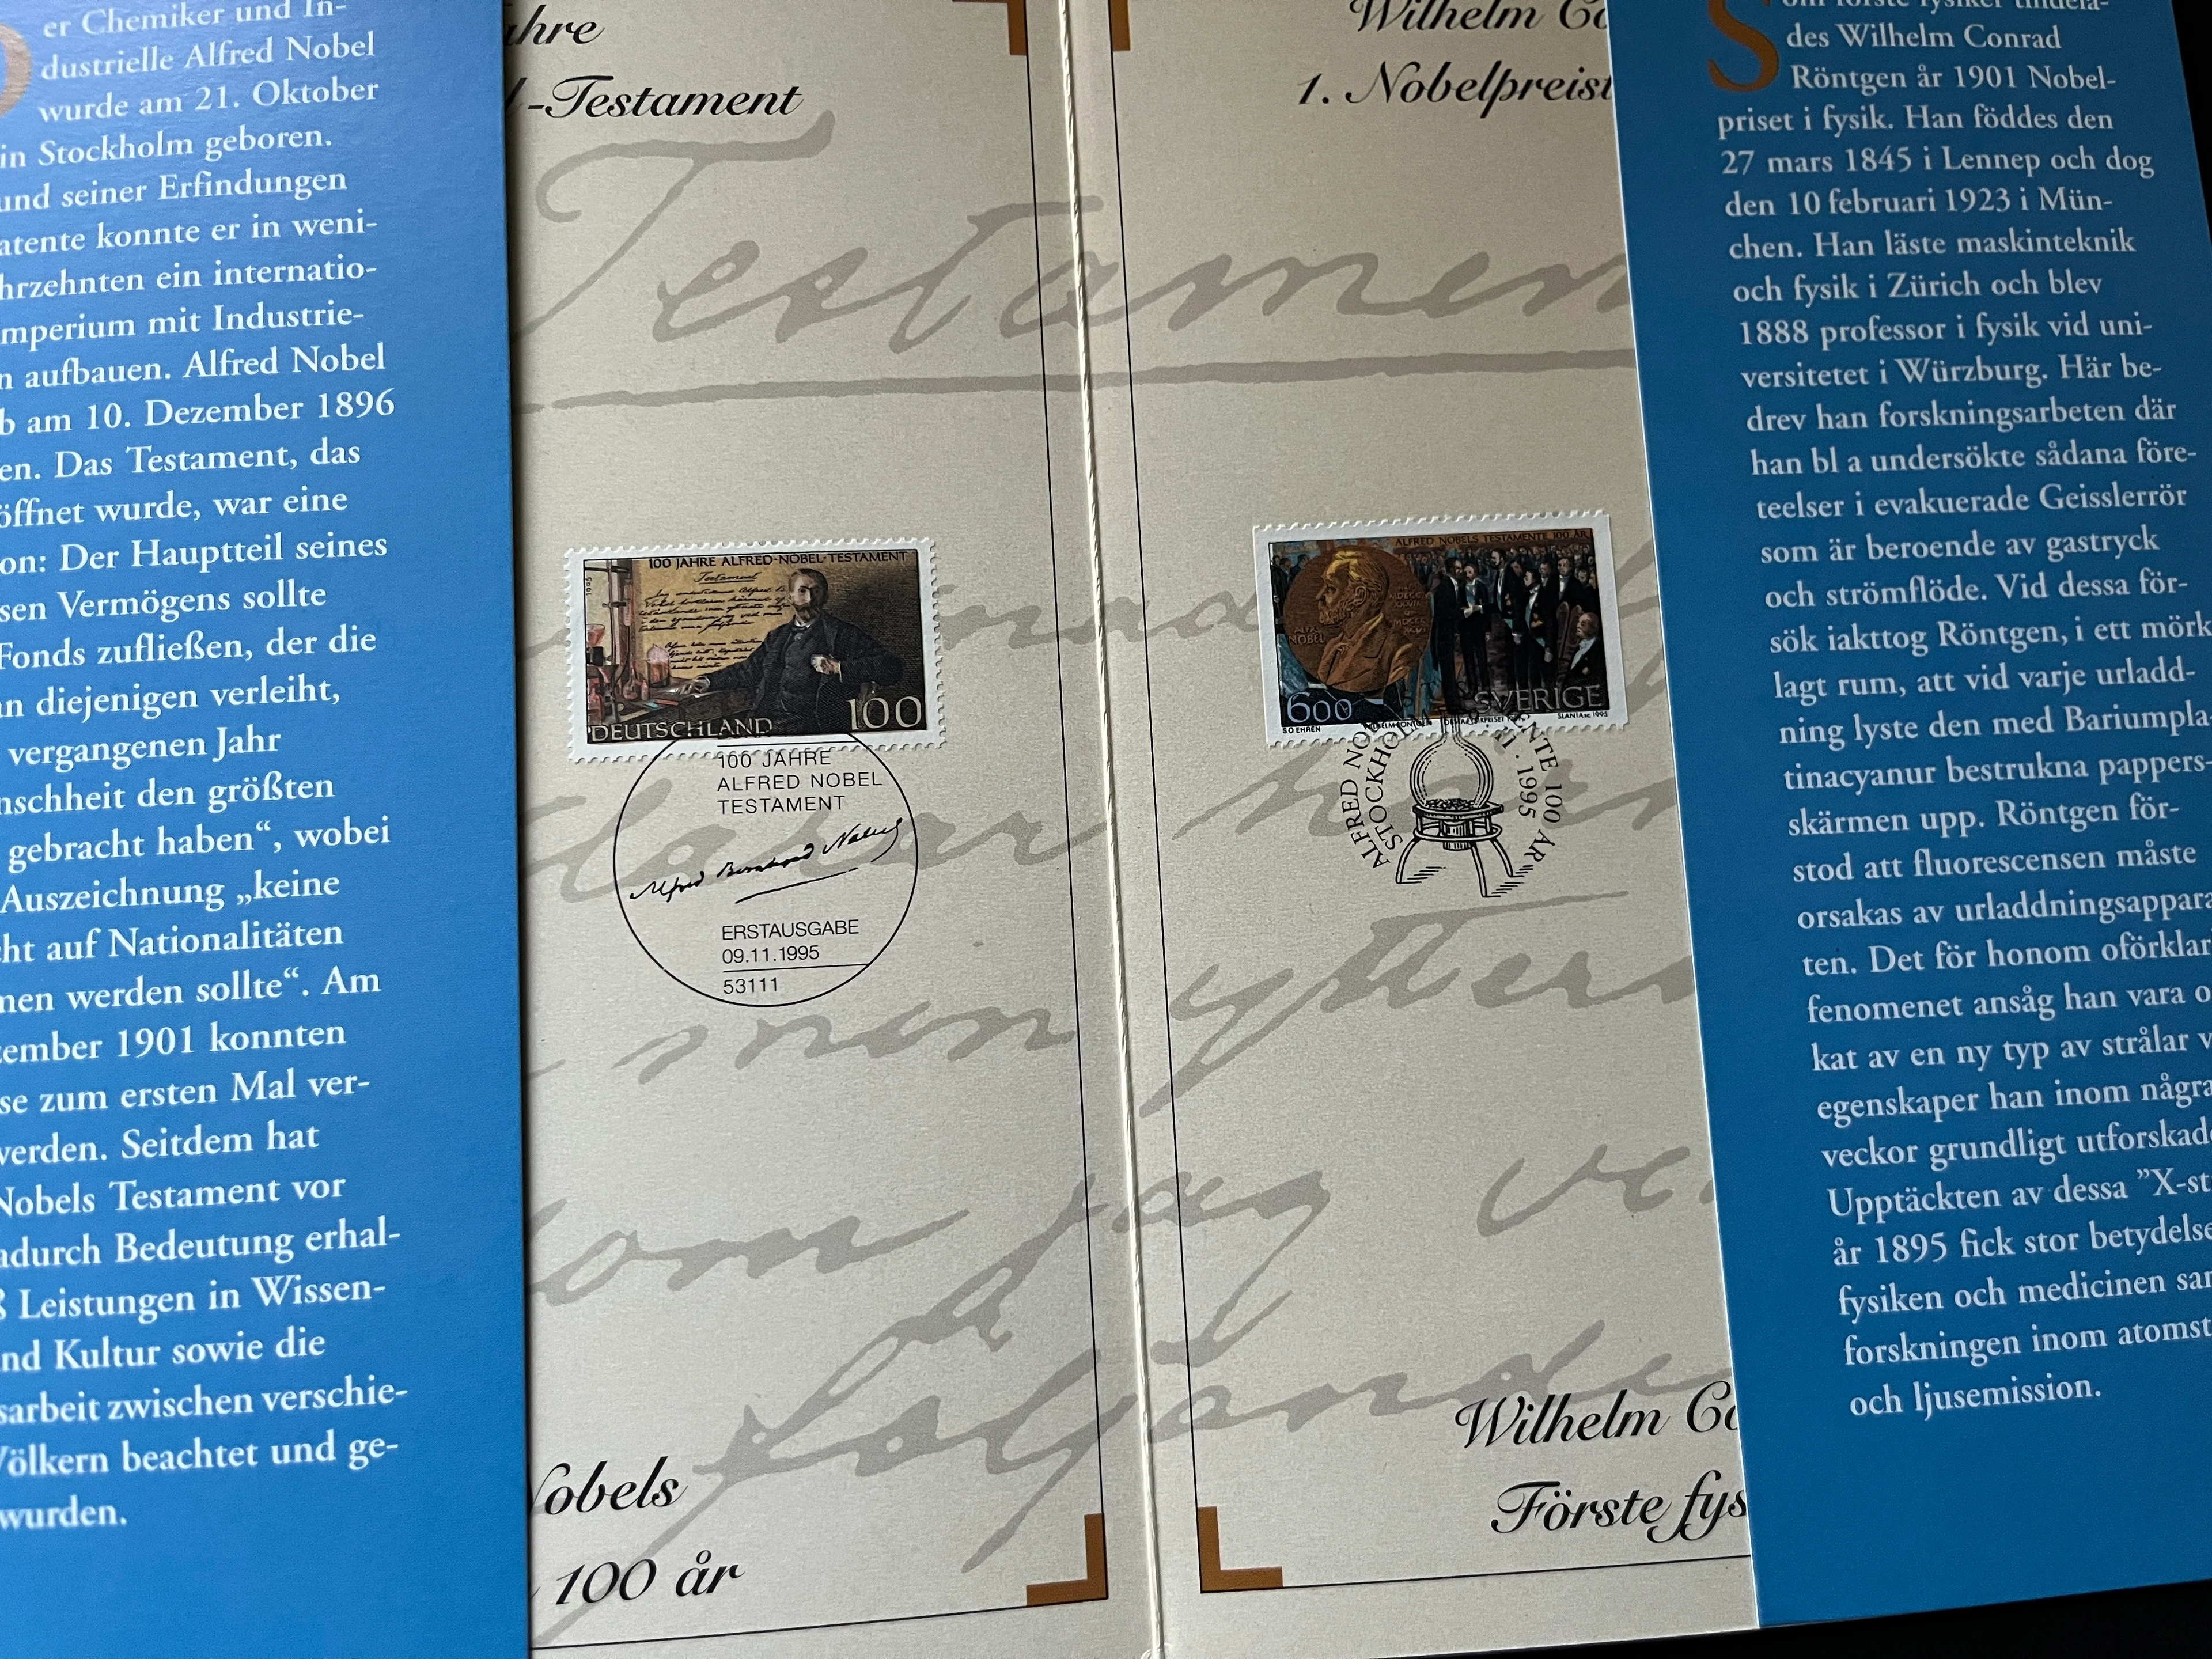 er Chemiker und In-
dustrielle Alfred Nobel
wurde am 21. Oktober
in Stockholm geboren.
und seiner Erfindungen
atente konnte er in weni-
hrzehnten ein internatio-
mperium mit Industrie-
n aufbauen. Alfred Nobel
b am 10. Dezember 1896
en. Das Testament, das
öffnet wurde, war eine
on: Der Hauptteil seines
sen Vermögens sollte
Fonds zufließen, der die
an diejenigen verleiht,
vergangenen Jahr
nschheit den größten
gebracht haben“, wobei
Auszeichnung „keine
cht auf Nationalitäten
men werden sollte“. Am
zember 1901 konnten
se zum ersten Mal ver-
werden. Seitdem hat
Nobels Testament vor
adurch Bedeutung erhal-
ß Leistungen in Wissen-
nd Kultur sowie die
sarbeit zwischen verschie-
Völkern beachtet und ge-
wurden.
ahre
l-Testament
Testamen
100 JAHRE ALFRED-NOBEL-TESTAMENT
Testament
1995
DEUTSCHLAND 100
100 JAHRE
ALFRED NOBEL
TESTAMENT
Alfred Bernhard Nobel
ERSTAUSGABE
09.11.1995
53111
min ytters
om jag ve
följande
Nobels
100 år
Wilhelm Co
1. Nobelpreist
ALFRED NOBELS TESTAMENTE 100 ÅR
ALFR.
NOBEL
600 SVERIGE
S.O.EHREN SLANIA SC 1995
ALFRED NO NTE 100 ÅR
STOCKHOL 11.1995
Wilhelm Co
Förste fys
S om förste fysiker tilldela-
des Wilhelm Conrad
Röntgen år 1901 Nobel-
priset i fysik. Han föddes den
27 mars 1845 i Lennep och dog
den 10 februari 1923 i Mün-
chen. Han läste maskinteknik
och fysik i Zürich och blev
1888 professor i fysik vid uni-
versitetet i Würzburg. Här be-
drev han forskningsarbeten där
han bl a undersökte sådana före-
teelser i evakuerade Geisslerrör
som är beroende av gastryck
och strömflöde. Vid dessa för-
sök iakttog Röntgen, i ett mörk
lagt rum, att vid varje urladd-
ning lyste den med Bariumpla-
tinacyanur bestrukna pappers-
skärmen upp. Röntgen för-
stod att fluorescensen måste
orsakas av urladdningsappara
ten. Det för honom oförklar
fenomenet ansåg han vara o
kat av en ny typ av strålar v
egenskaper han inom några
veckor grundligt utforskade
Upptäckten av dessa ”X-st
år 1895 fick stor betydelse
fysiken och medicinen sam
forskningen inom atomst
och ljusemission.